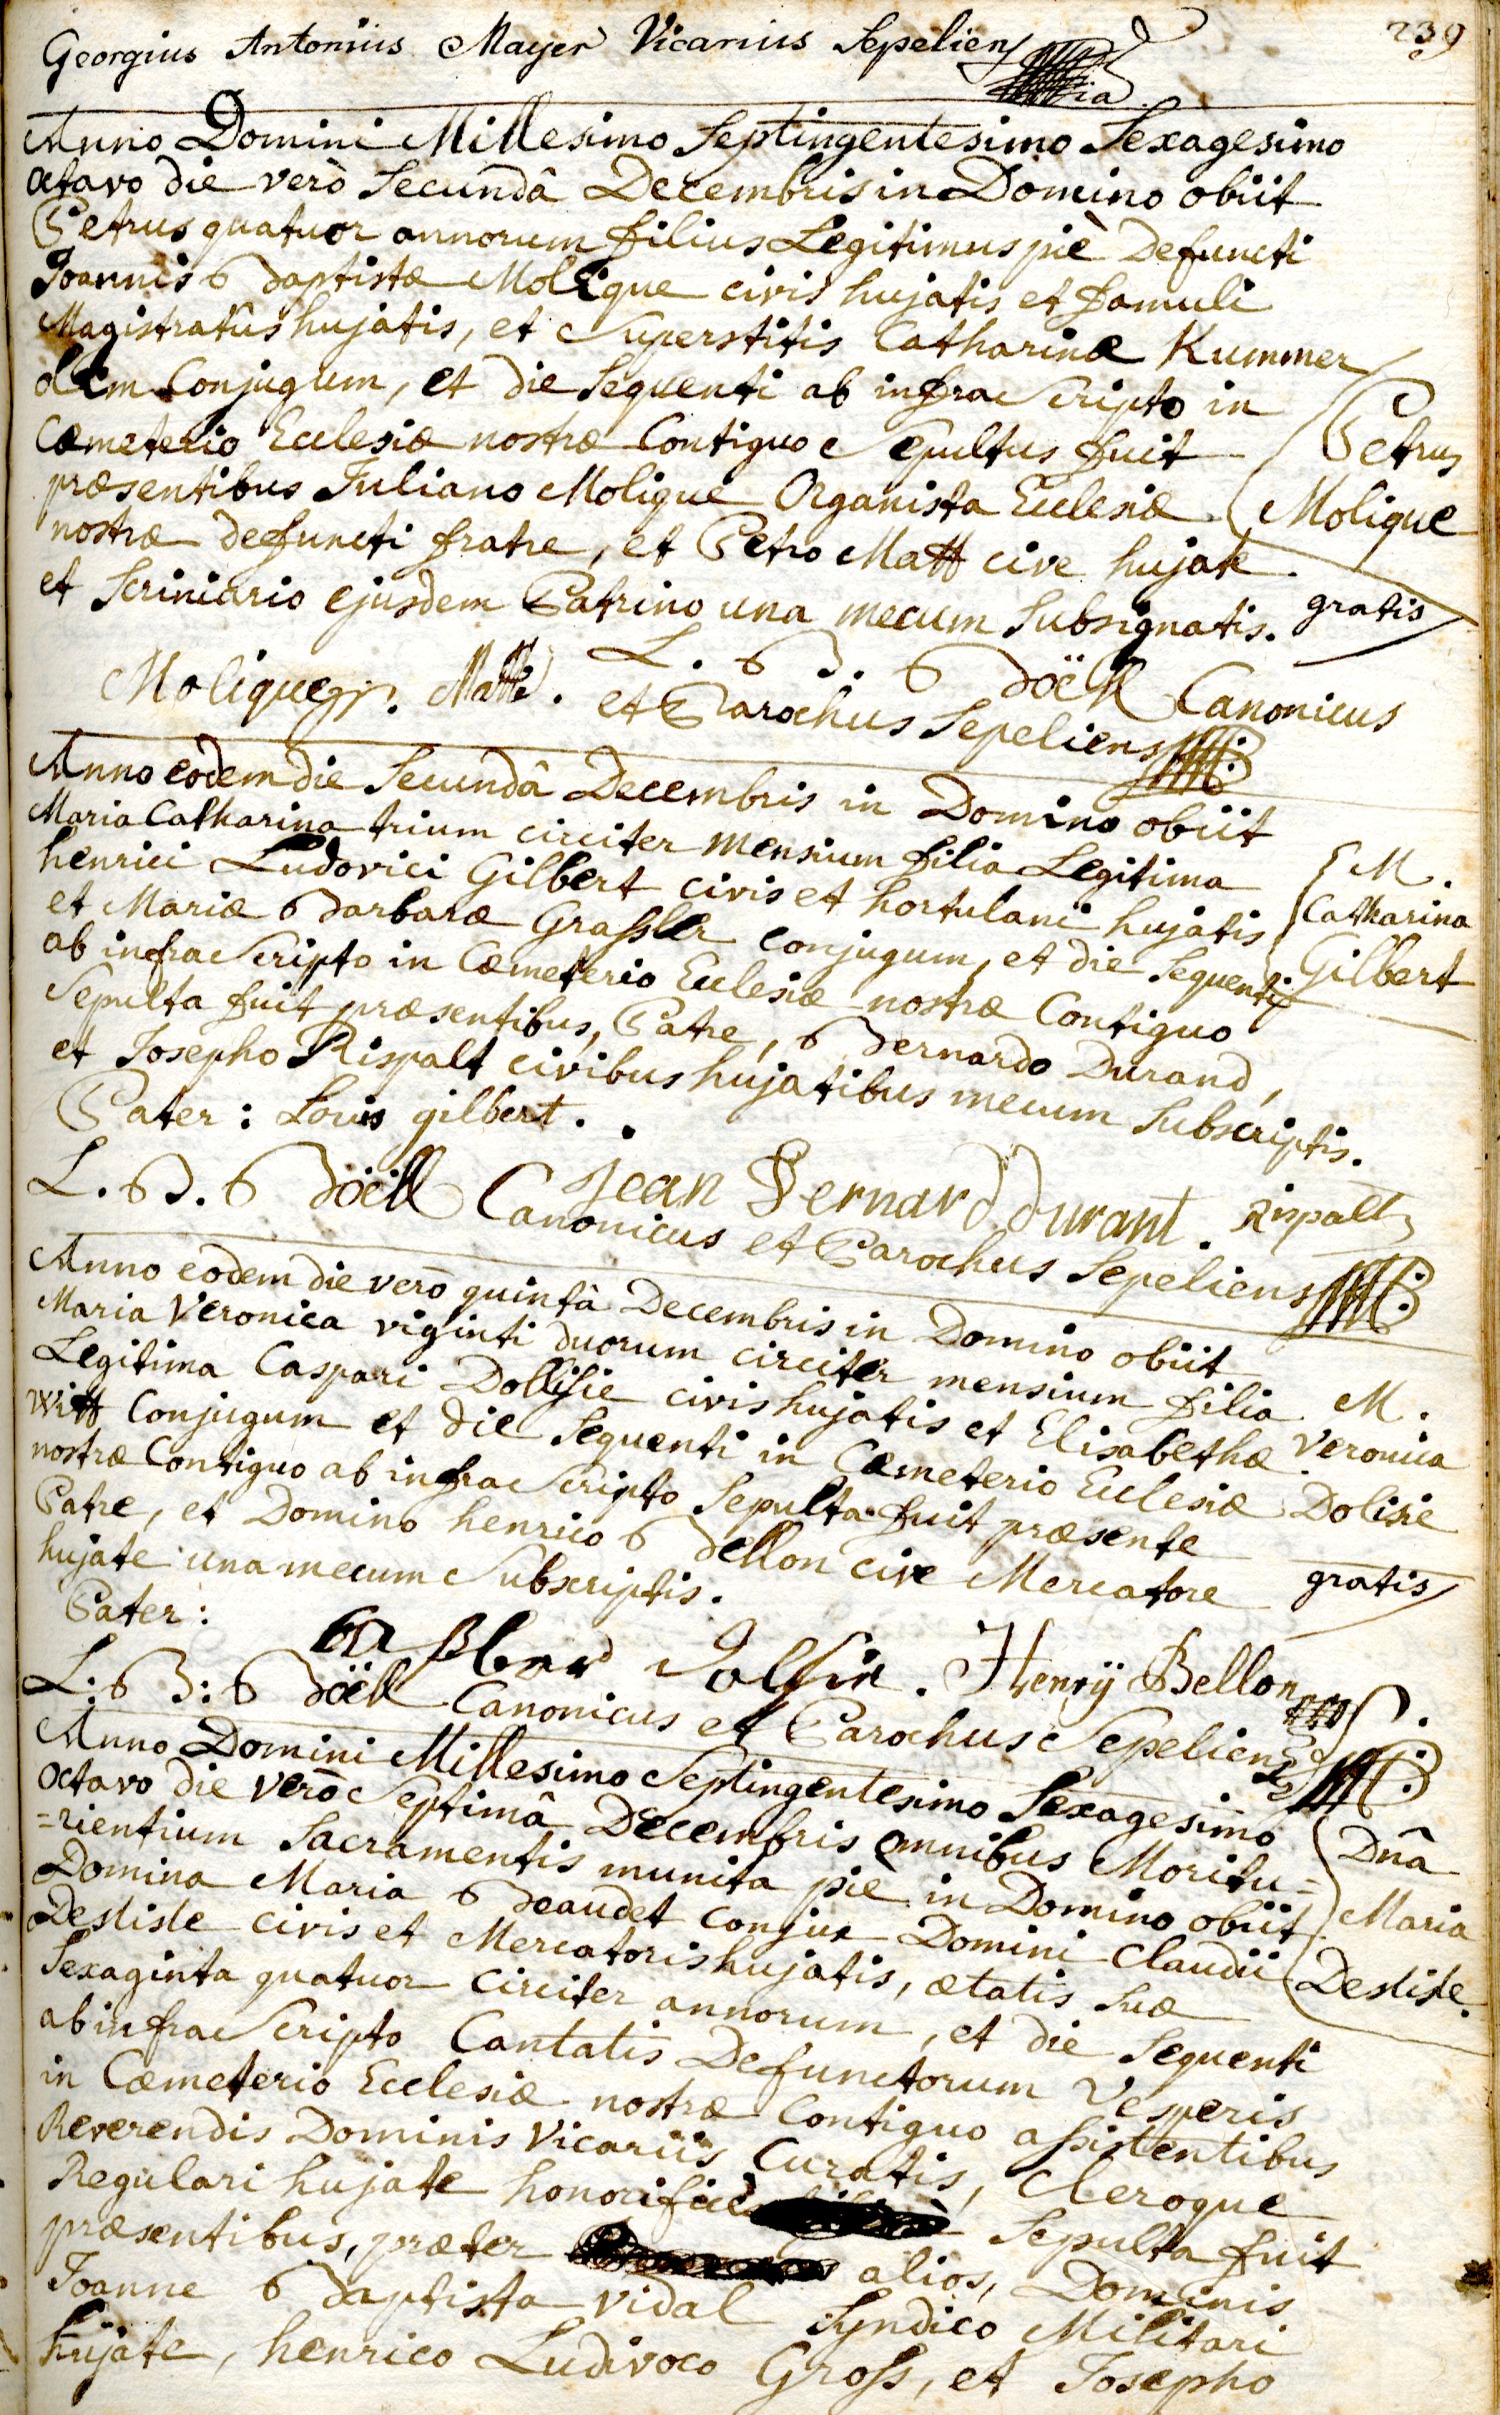 239
Georgius Antonius Mayer Vicarius Sepeliens
Anno Domini Millesimo Septingentesimo Sexagesimo
octavo die verò Secundâ Decembris in Domino obiit
Petrus quatuor annorum filius Legitimus piè Defuncti
Joannis Baptistæ Molique civis hujatis et famuli
Magistratûs hujatis, et Superstitis Catharinæ Kummer
olim Conjugum, et die Sequenti ab infra Scripto in
Cœmeterio Ecclesiæ nostræ Contiguo Sepultus fuit
Petrus
præsentibus Juliano Molique Organista Ecclesiæ
Molique
nostræ defuncti fratre, et Petro Matt cive hujate
et Scriniario ejusdem Patrino una mecum Subsignatis.
gratis
Molique. Matt. L. B. Böell Canonicus
et Parochus Sepeliens
Anno eodem die Secundâ Decembris in Domino obiit
Maria Catharina trium circiter mensium filia Legitima
henrici Ludovici Gilbert civis et hortulani hujatis
M.
Catharina
Gilbert
et Mariæ Barbaræ Grassler conjugum, et die Sequenti
ab infra Scripto in Cœmeterio Ecclesiæ nostræ Contiguo
Sepulta fuit præsentibus, Patre, Bernardo Durand,
et Josepho Rispalt civibus hujatibus mecum Subscriptis.
Pater: Louis gilbert.
Jean Bernard durant. Rispalt
L. B. Böell Canonicus et Parochus Sepeliens
Anno eodem die verò quintâ Decembris in Domino obiit
Maria Veronica viginti duorum circiter mensium filia
Legitima Caspari Dollisie civis hujatis et Elisabethæ
M.
Veronica
Dolisie
Witt Conjugum et die Sequenti in Cœmeterio Ecclesiæ
nostræ Contiguo ab infra Scripto Sepulta fuit præsente
Patre, et Domino henrico Bellon cive Mercatore
gratis
hujate una mecum Subscriptis.
Pater:
Henrÿ Bellon
L: B: Böell Canonicus et Parochus Sepeliens
Anno Domini Millesimo Septingentesimo Sexagesimo
octavo die verò Septimâ Decembris omnibus Moritu=
=rientium Sacramentis munita piè in Domino obiit
Dnâ
Maria
Deslisle.
Domina Maria Beaudet conjux Domini Claudii
Deslisle civis et Mercatoris hujatis, ætatis suæ
Sexaginta quatuor circiter annorum, et die Sequenti
ab infra Scripto Cantatis Defunctorum Vesperis
in Cœmeterio Ecclesiæ nostræ Contiguo assistentibus
Reverendis Dominis Vicariis Curatis, Cleroque
Regulari hujate honorificè Sepulta fuit
præsentibus, præter alios, Dominis
Joanne Baptista Vidal Syndico Militari
hujate, henrico Ludivoco Gross, et Josepho